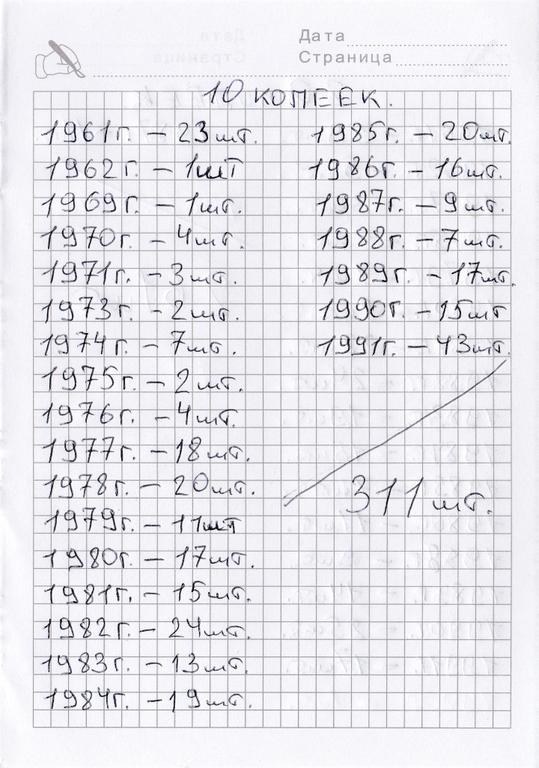 Дата
Страница
10 КОПЕЕК.
1961г. – 23шт.
1962г. – 1шт
1969г. – 1шт.
1970г. – 4шт.
1971г. – 3шт.
1973г. – 2шт.
1974г. – 7шт.
1975г. – 2шт.
1976г. – 4шт.
1977г. – 18шт.
1978г. – 20шт.
1979г. – 11шт
1980г. – 17шт.
1981г. – 15шт.
1982г. – 24шт.
1983г. – 13шт.
1984г. – 19шт.
1985г. – 20шт.
1986г. – 16шт.
1987г. – 9шт.
1988г. – 7шт.
1989г. – 17шт.
1990г. – 15шт
1991г. – 43шт.
311шт.